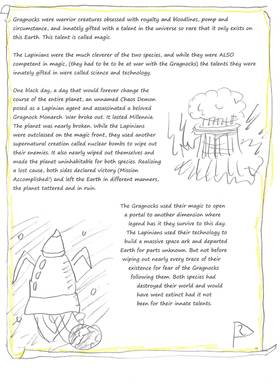 Gragnocks were warrior creatures obsessed with royalty and bloodlines, pomp and
circumstance, and innately gifted with a talent in the universe so rare that it only exists on
this Earth. This talent is called magic.
The Lapinians were the much cleverer of the two species, and while they were ALSO
competent in magic, (they had to be to be at war with the Gragnocks) the talents they were
innately gifted in were called science and technology.
One black day, a day that would forever change the
course of the entire planet, an unnamed Chaos Demon
posed as a Lapinian agent and assassinated a beloved
Gragnock Monarch. War broke out. It lasted Millennia.
The planet was nearly broken. While the Lapinians
were outclassed on the magic front, they used another
supernatural creation called nuclear bombs to wipe out
their enemies. It also nearly wiped out themselves and
made the planet uninhabitable for both species. Realizing
a lost cause, both sides declared victory (Mission
Accomplished!) and left the Earth in different manners,
the planet tattered and in ruin.
The Gragnocks used their magic to open
a portal to another dimension where
legend has it they survive to this day.
The Lapinians used their technology to
build a massive space ark and departed
Earth for parts unknown. But not before
wiping out nearly every trace of their
existence for fear of the Gragnocks
following them. Both species had
destroyed their world and would
have went extinct had it not
been for their innate talents.